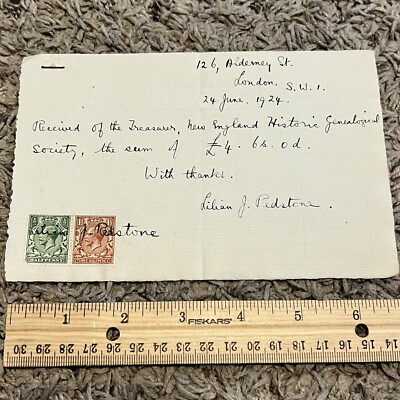 126, Alderney St.
London. S.W.1.
24 June, 1924.
Received of the Treasurer, New England Historic Genealogical
Society, the sum of £4. 6s. 0d.
With thanks.
Lilian J. Redstone.
Lilian J. Redstone
HALFPENNY
1 2 3 FISKARS 4 5 6
30 29 28 27 26 25 24 23 22 21 20 19 18 17 16 15 14